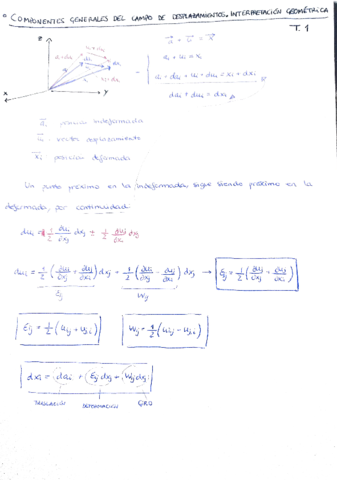 COMPONENTES GENERALES DEL CAMPO DE DESPLAZAMIENTOS, INTERPRETACIÓN GEOMÉTRICA
T. 1
a + u = x
ai + ui = xi
ai + dai + ui + dui = xi + dxi
dai + dui = dxi
z
x
y
ai posición indeformada
ui vector desplazamiento
xi posición deformada
Un punto próximo en la indeformada sigue siendo próximo en la
deformada, por continuidad
dui = 1/2 ∂ui/∂xj dxj ± 1/2 ∂uj/∂xi dxj
dui = 1/2 (∂ui/∂xj + ∂uj/∂xi) dxj + 1/2 (∂ui/∂xj - ∂uj/∂xi) dxj → Eij = 1/2 (∂ui/∂xj + ∂uj/∂xi)
Eij Wij
Eij = 1/2 (ui,j + uj,i) Wij = 1/2 (ui,j - uj,i)
dxi = dai + Eij dxj + Wij dxj
TRASLACIÓN DEFORMACIÓN GIRO